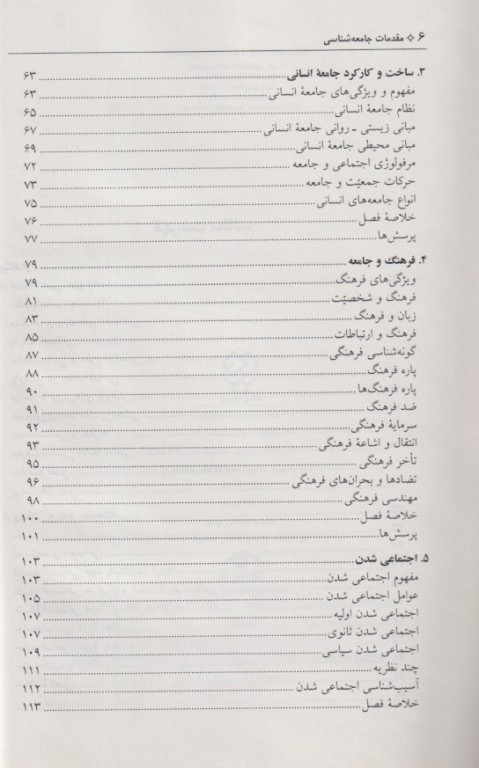 ۶ ❖ مقدمات جامعه‌شناسی
۳. ساخت و کارکرد جامعهٔ انسانی ۶۳
مفهوم و ویژگی‌های جامعهٔ انسانی ۶۳
نظام جامعهٔ انسانی ۶۵
مبانی زیستی ـ روانی جامعهٔ انسانی ۶۷
مبانی محیطی جامعهٔ انسانی ۶۹
مرفولوژی اجتماعی و جامعه ۷۲
حرکات جمعیّت و جامعه ۷۳
انواع جامعه‌های انسانی ۷۵
خلاصهٔ فصل ۷۶
پرسش‌ها ۷۷
۴. فرهنگ و جامعه ۷۹
ویژگی‌های فرهنگ ۷۹
فرهنگ و شخصیّت ۸۱
زبان و فرهنگ ۸۳
فرهنگ و ارتباطات ۸۵
گونه‌شناسی فرهنگی ۸۷
پاره فرهنگ ۸۸
پاره فرهنگ‌ها ۹۰
ضد فرهنگ ۹۱
سرمایهٔ فرهنگی ۹۲
انتقال و اشاعهٔ فرهنگی ۹۳
تأخر فرهنگی ۹۵
تضادها و بحران‌های فرهنگی ۹۶
مهندسی فرهنگی ۹۸
خلاصهٔ فصل ۱۰۰
پرسش‌ها ۱۰۱
۵. اجتماعی شدن ۱۰۳
مفهوم اجتماعی شدن ۱۰۳
عوامل اجتماعی شدن ۱۰۵
اجتماعی شدن اولیه ۱۰۷
اجتماعی شدن ثانوی ۱۰۷
اجتماعی شدن سیاسی ۱۰۹
چند نظریه ۱۱۱
آسیب‌شناسی اجتماعی شدن ۱۱۲
خلاصهٔ فصل ۱۱۳